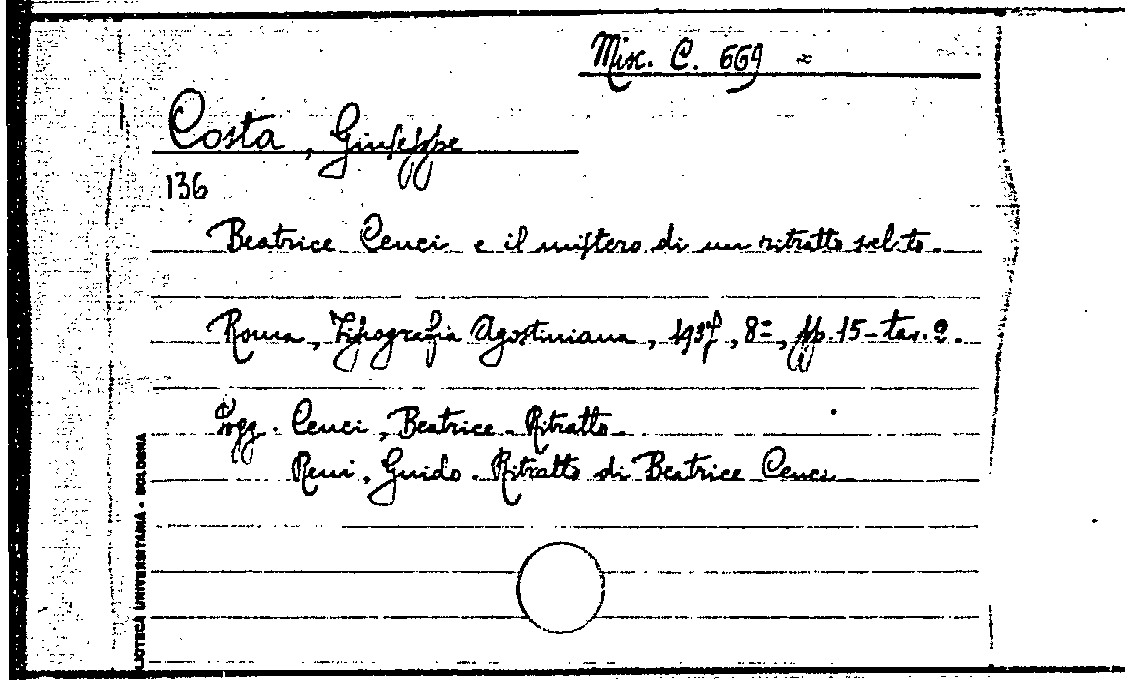 Misc. C. 669
Costa, Giuseppe
136
Beatrice Cenci e il mistero di un ritratto
Roma, Tipografia Agostiniana, 1937, 8º, pp. 15 - tav. 2.
Sogg. Cenci, Beatrice - Ritratto
Reni, Guido - Ritratto di Beatrice Cenci
LIOTECA UNIVERSITARIA - BOLOGNA